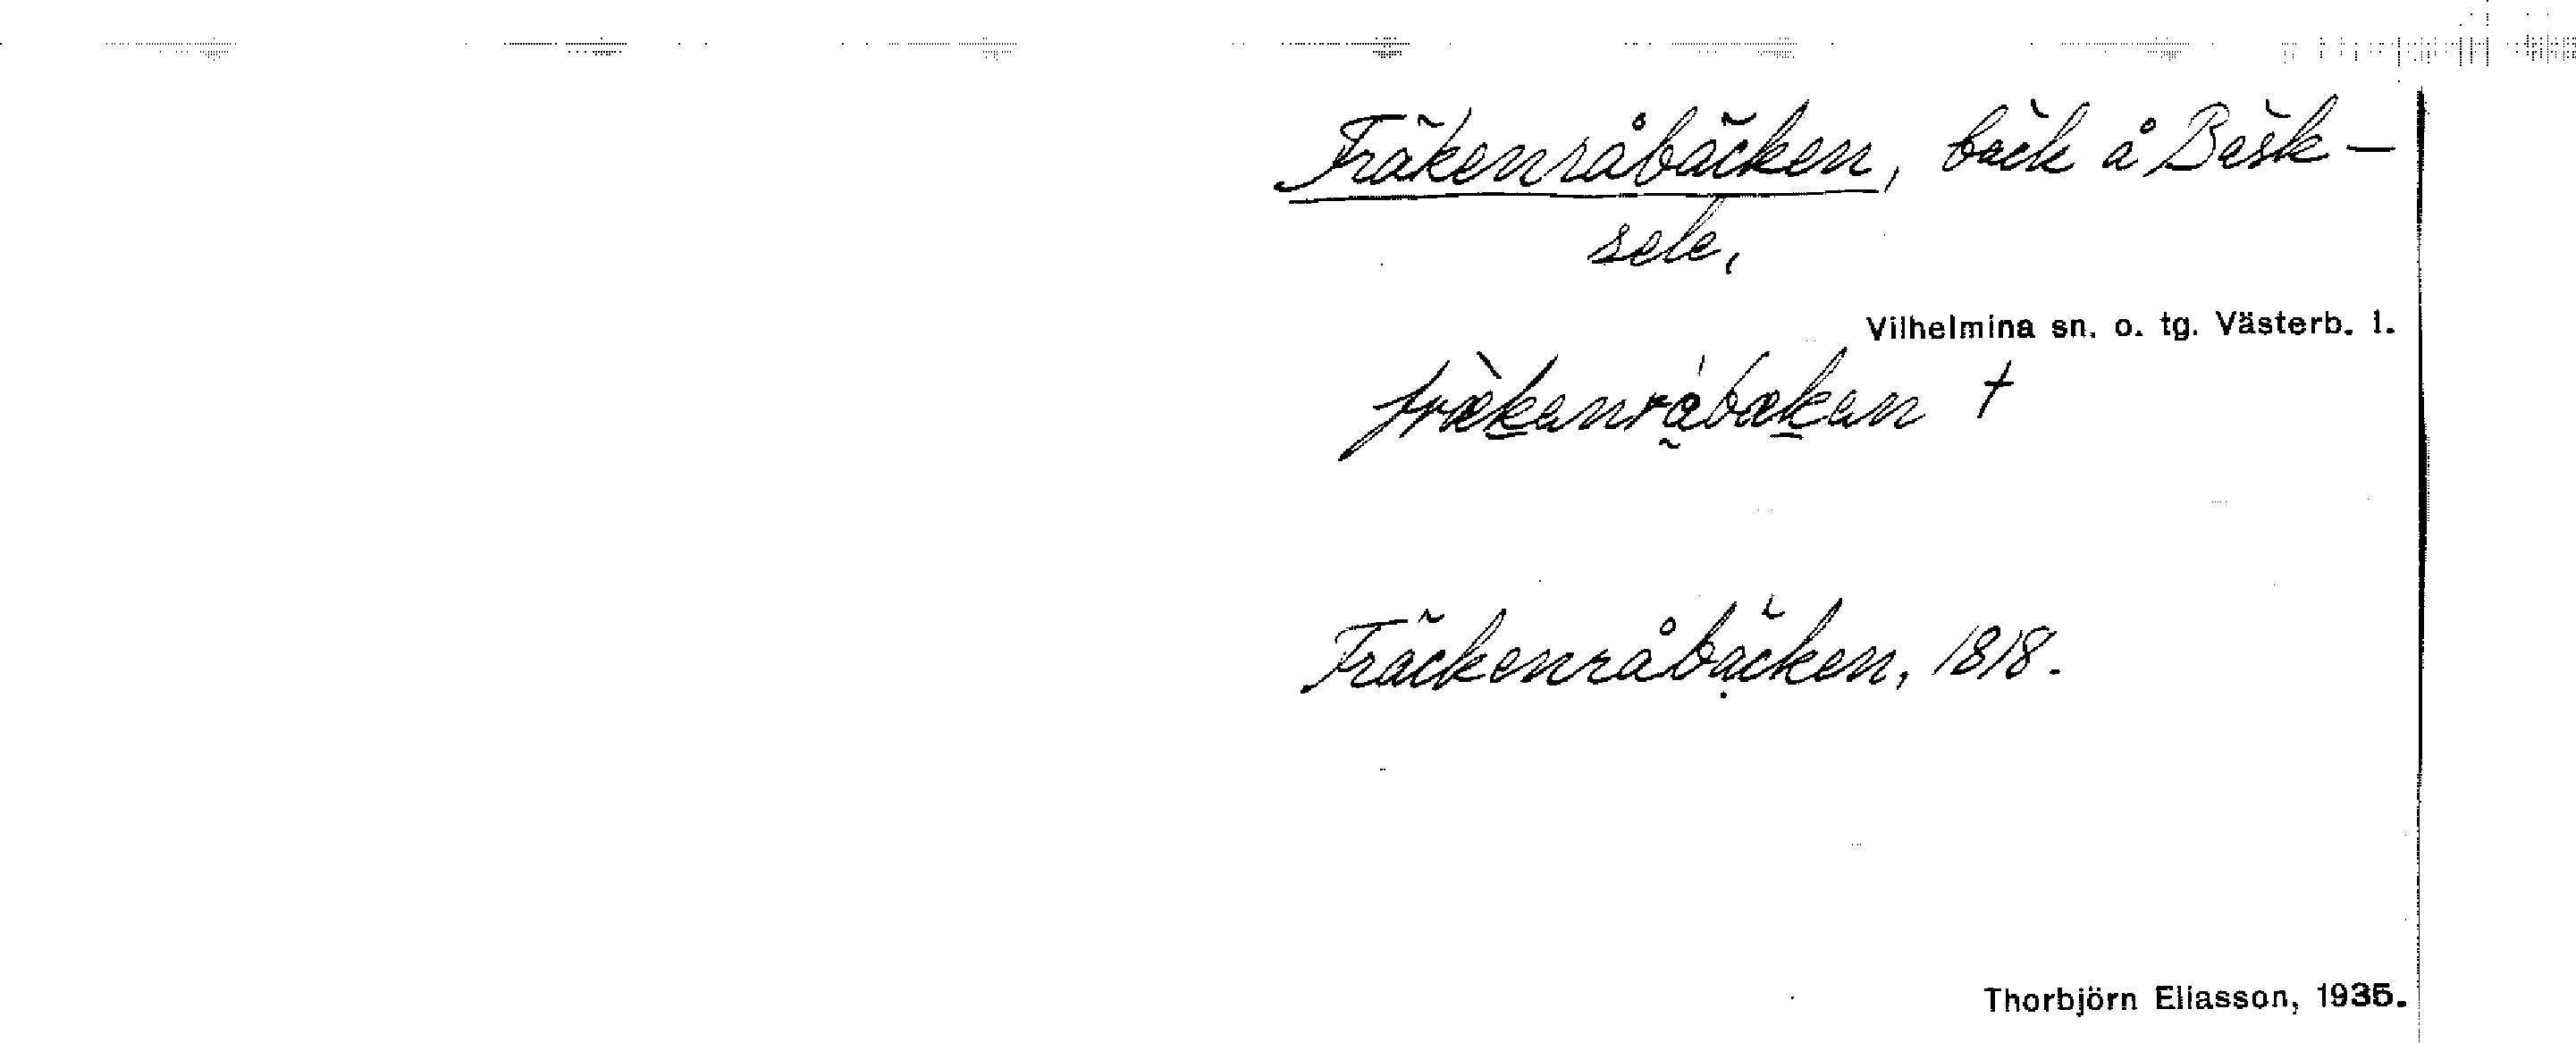 Fräkenråbäcken, bäck å Bäsk-
sele,
Vilhelmina sn. o. tg. Västerb. l.
fræ̀kanråbækan †
Fräckenråbäcken, 1818.
Thorbjörn Eliasson, 1935.